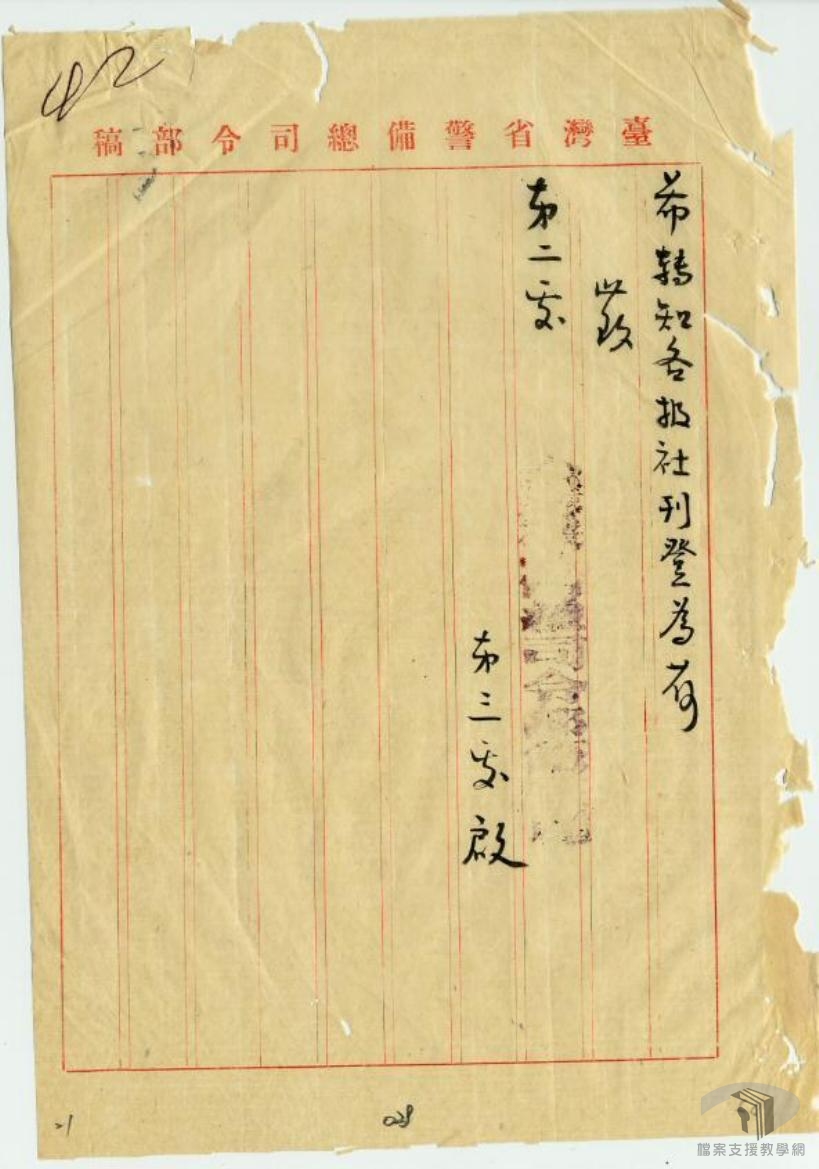 42
臺灣省警備總司令部稿
希轉知各报社刊登為荷
此致
第二处
第三处 啟
司令
21
028
檔案支援教學網